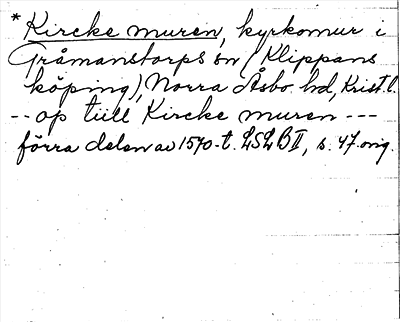 * Kircke muren, kyrkomur i
Gråmanstorps sn (Klippans
köping), Norra Åsbo hd, Krist. l.
-- op tiill Kircke muren ---
förra delen av 1570-t. LSLB II, s. 47. orig.